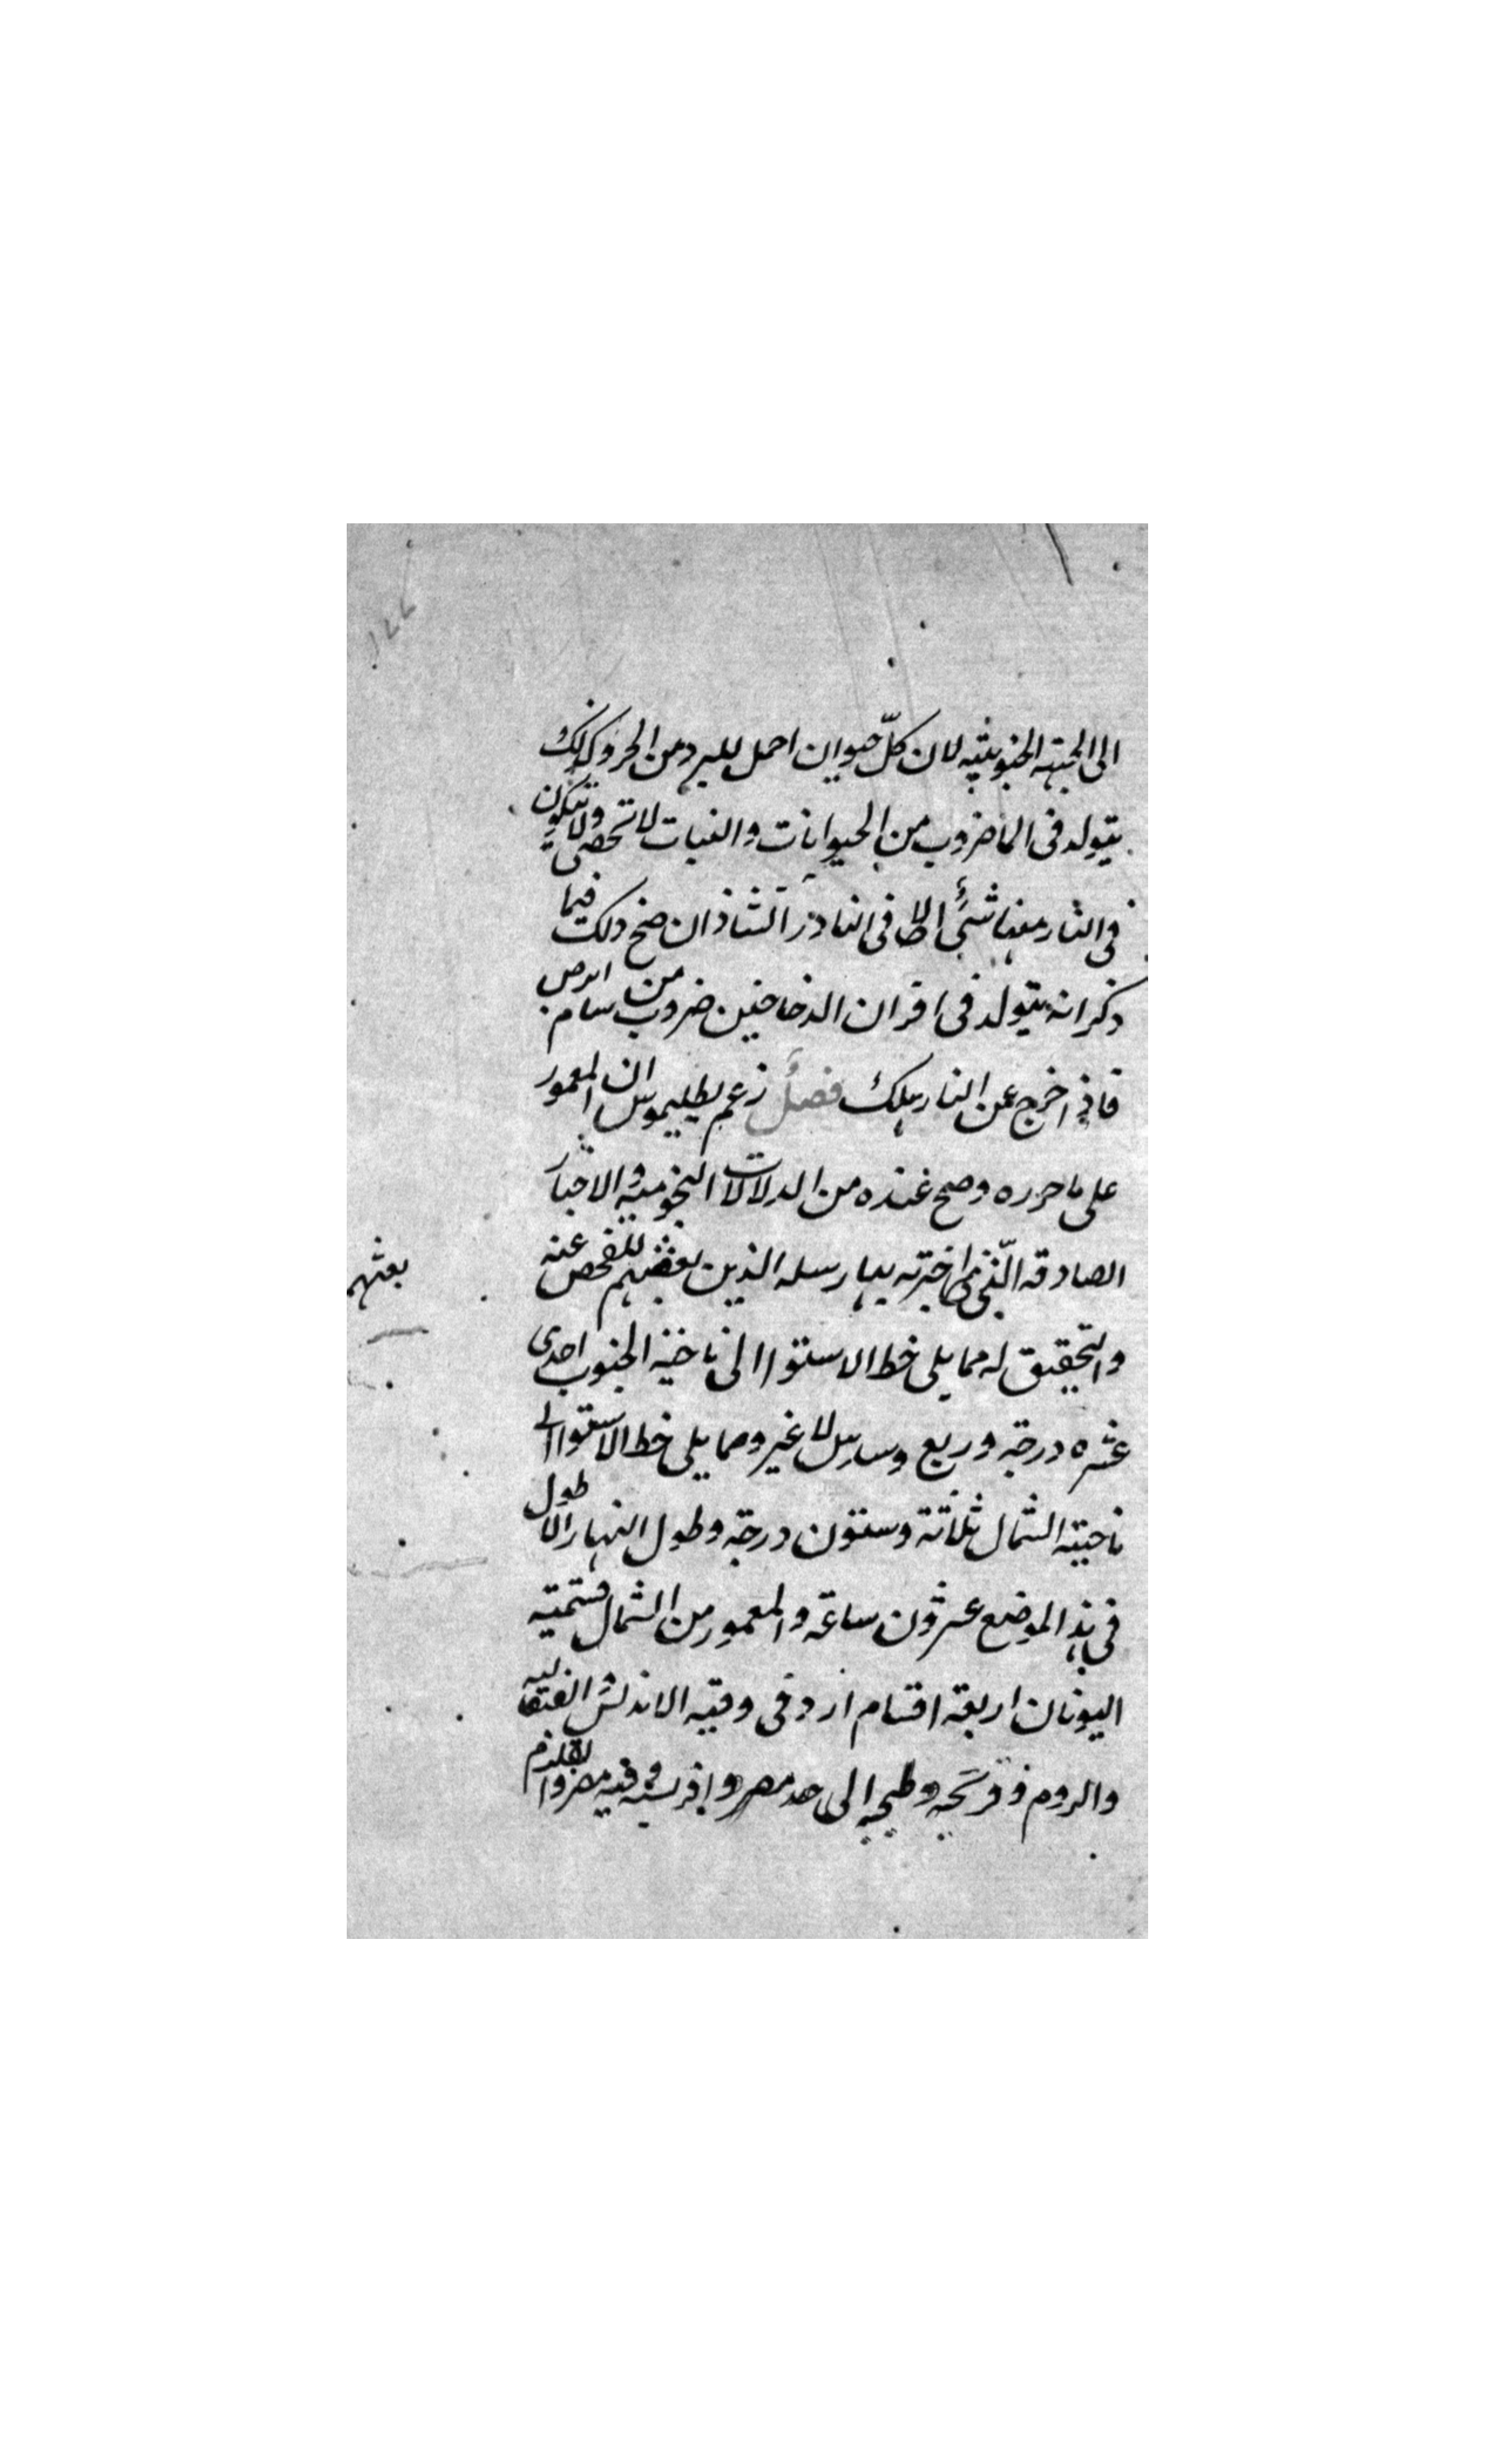 الى الجهة الجنوبية لان كلّ حيوان احمل للبرد من الحر وكذلك
يتولد فى الما ضروب من الحيوانات والنبات لا تحصى ولا يتكون
فى النار منها شئ الا فى النادر الشاذ ان صح ذلك فيما
ذكر انه يتولد فى افران الدخاخين ضروب من سام ابرص
فاذ اخرج عن النار هلك فصل زعم بطليموس ان المعمور
على ما حرره وصح عنده من الدلالات النجومية والاخبار
الصادقه الّتى اخبرته بها رسله الذين بعضهم للفحص عنه
بعثهم
والتحقيق له مما يلى خط الاستوا الى ناحية الجنوب احدى
عشره درجة وربع وسدس لا غير ومما يلى خط الاستوا الى
ناحية الشمال ثلاثة وستون درجة وطول النهار الاطول
فى هذا الموضع عشرون ساعة والمعمور من الشمال قسمته
اليونان اربعة اقسام اروفى وفيه الاندلس والصقالبه
والروم وفرنجه وطنجه الى حد مصر وافريقيه وفيه مصر والقلزم
١٤٤